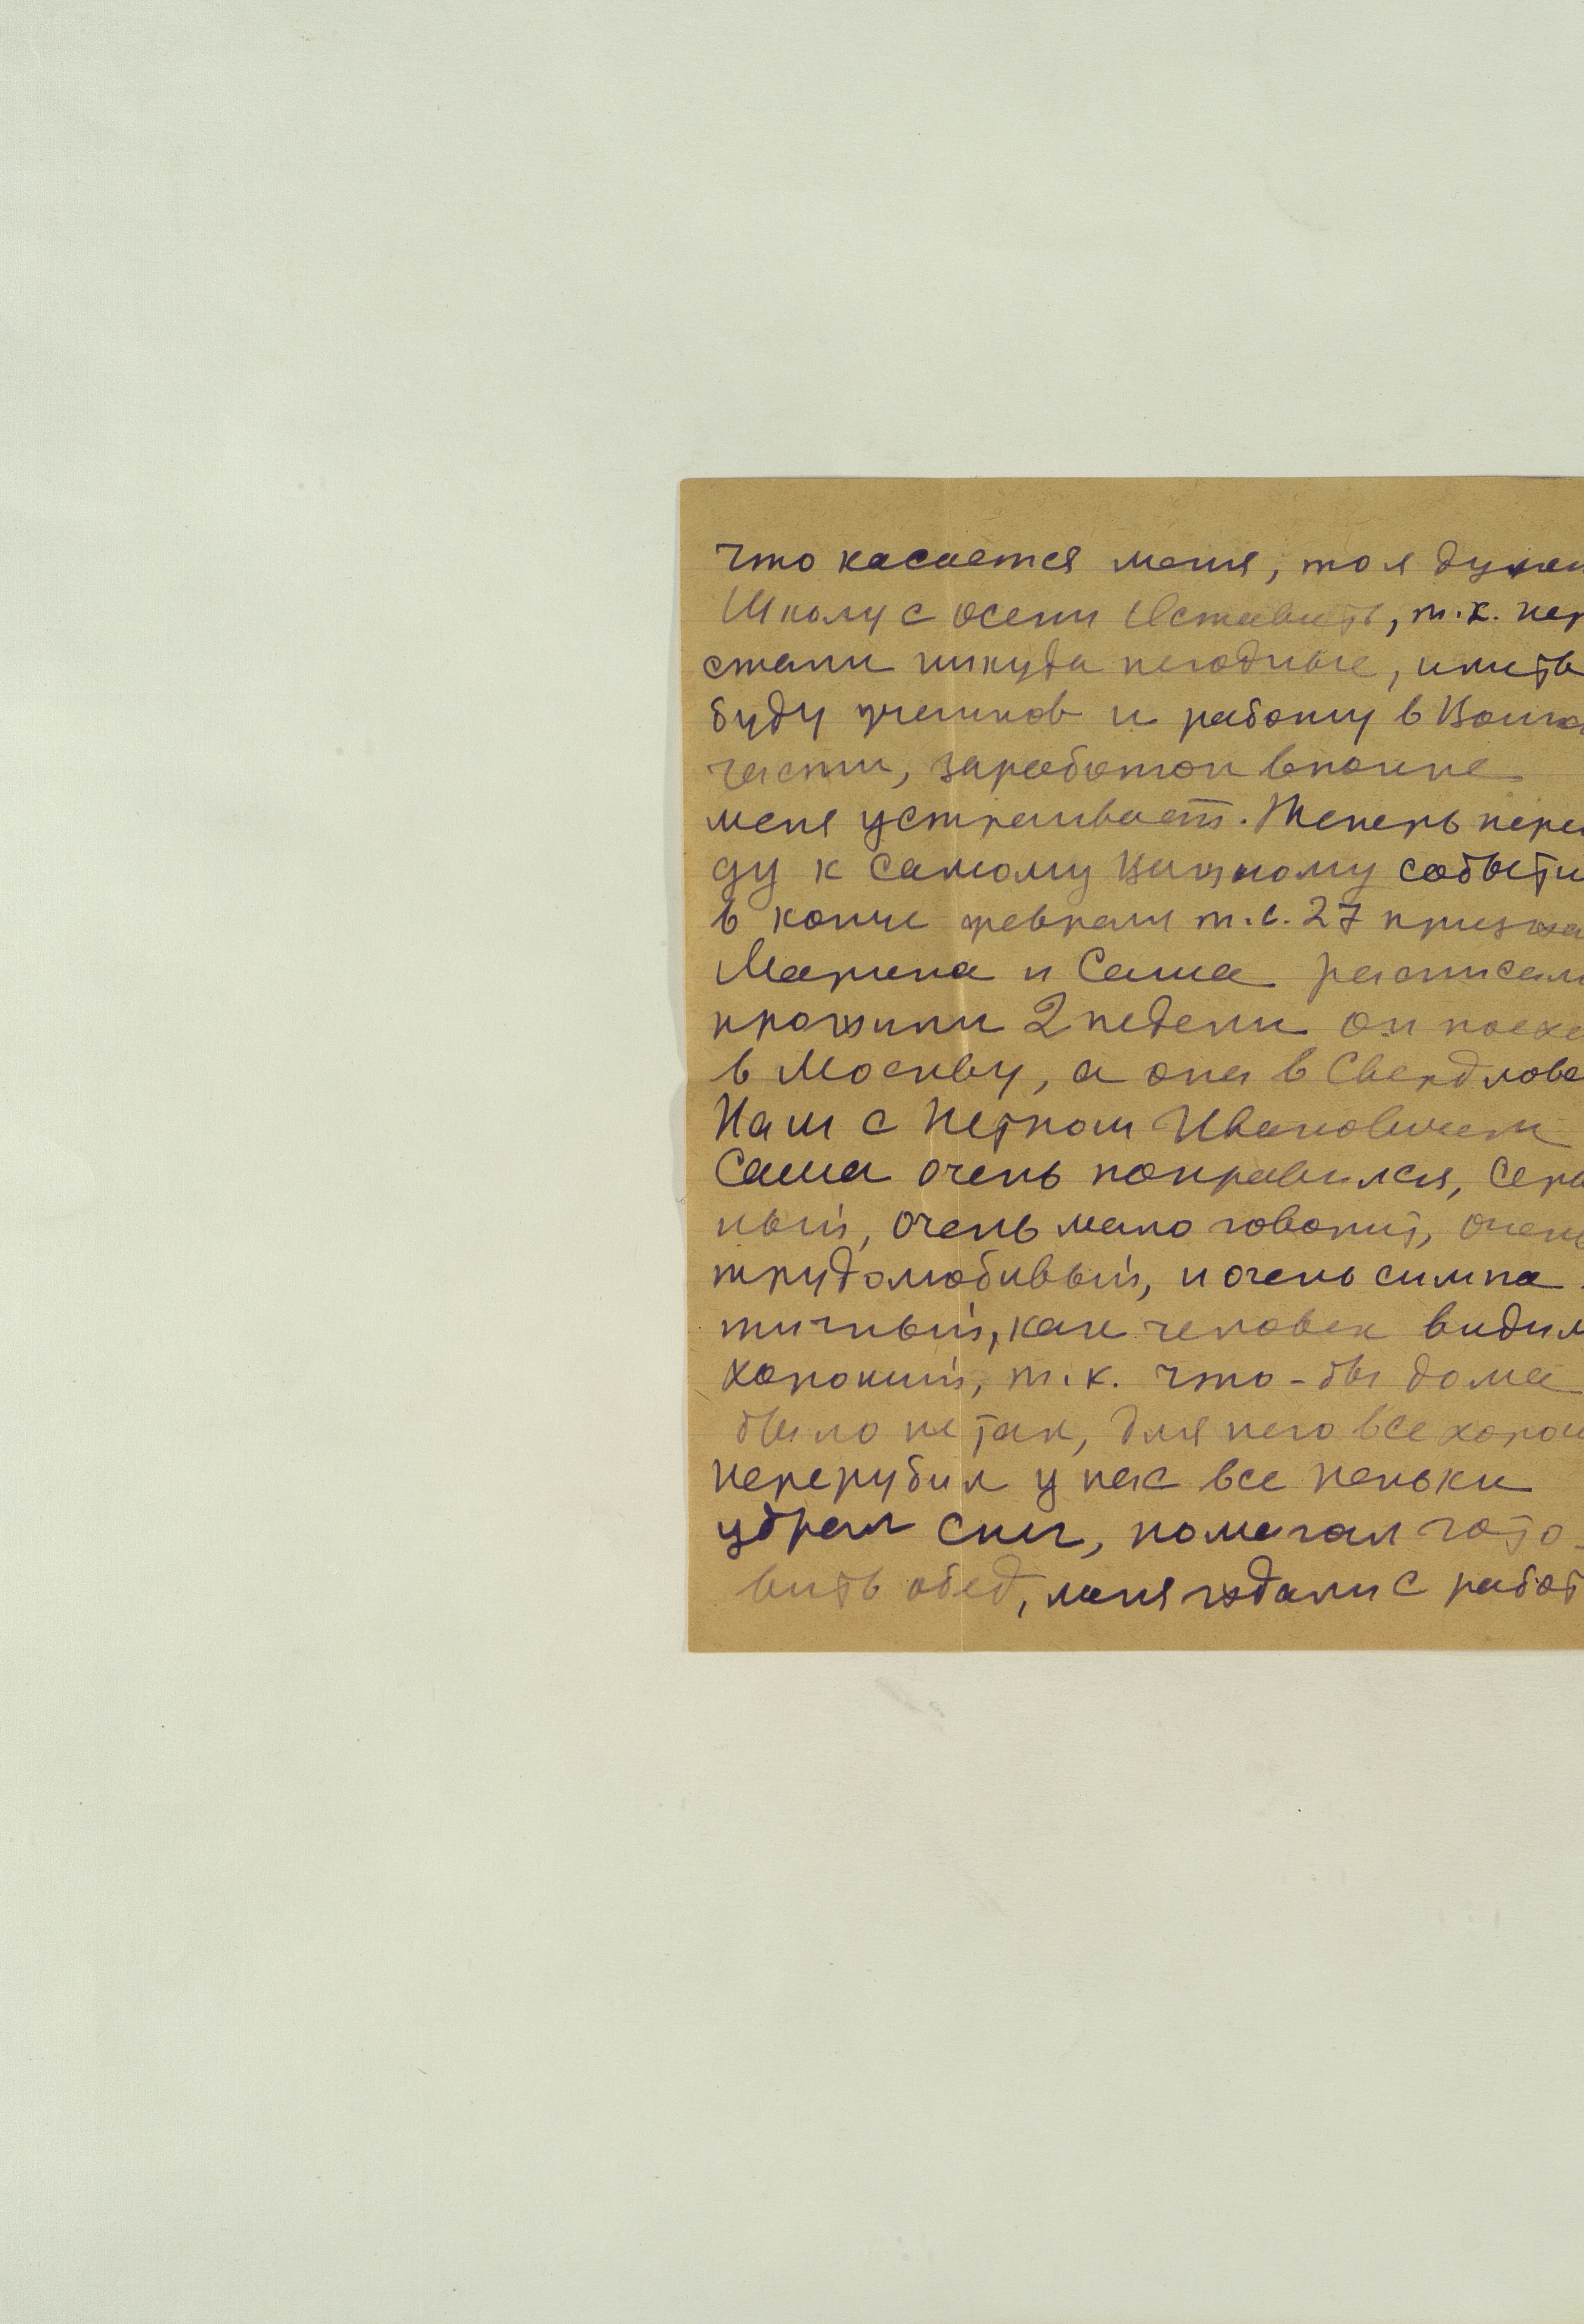 что касается меня, то я думаю
Школу с осени Оставить, т.к. нер
стали никуда негодные, иметь
буду учеников и работу в Воинс
части, заработок вполне
меня устраивает. Теперь перей
ду к самому важному событи
в конце февраля т.е. 27 приезжа
Марина и Саша расписали
прожили 2 недели он поеха
в Москву, а она в Свердловс
Нам с Петром Ивановичем
Саша очень понравился, серь
ный, очень мало говорит, очень
трудолюбивый, и очень симпа-
тичный, как человек видим
хороший, т.к. что-бы дома
было не так, для него все хорош
перерубил у нас все пеньки
убрал снег, помогал гото-
вить обед, меня ждали с работ